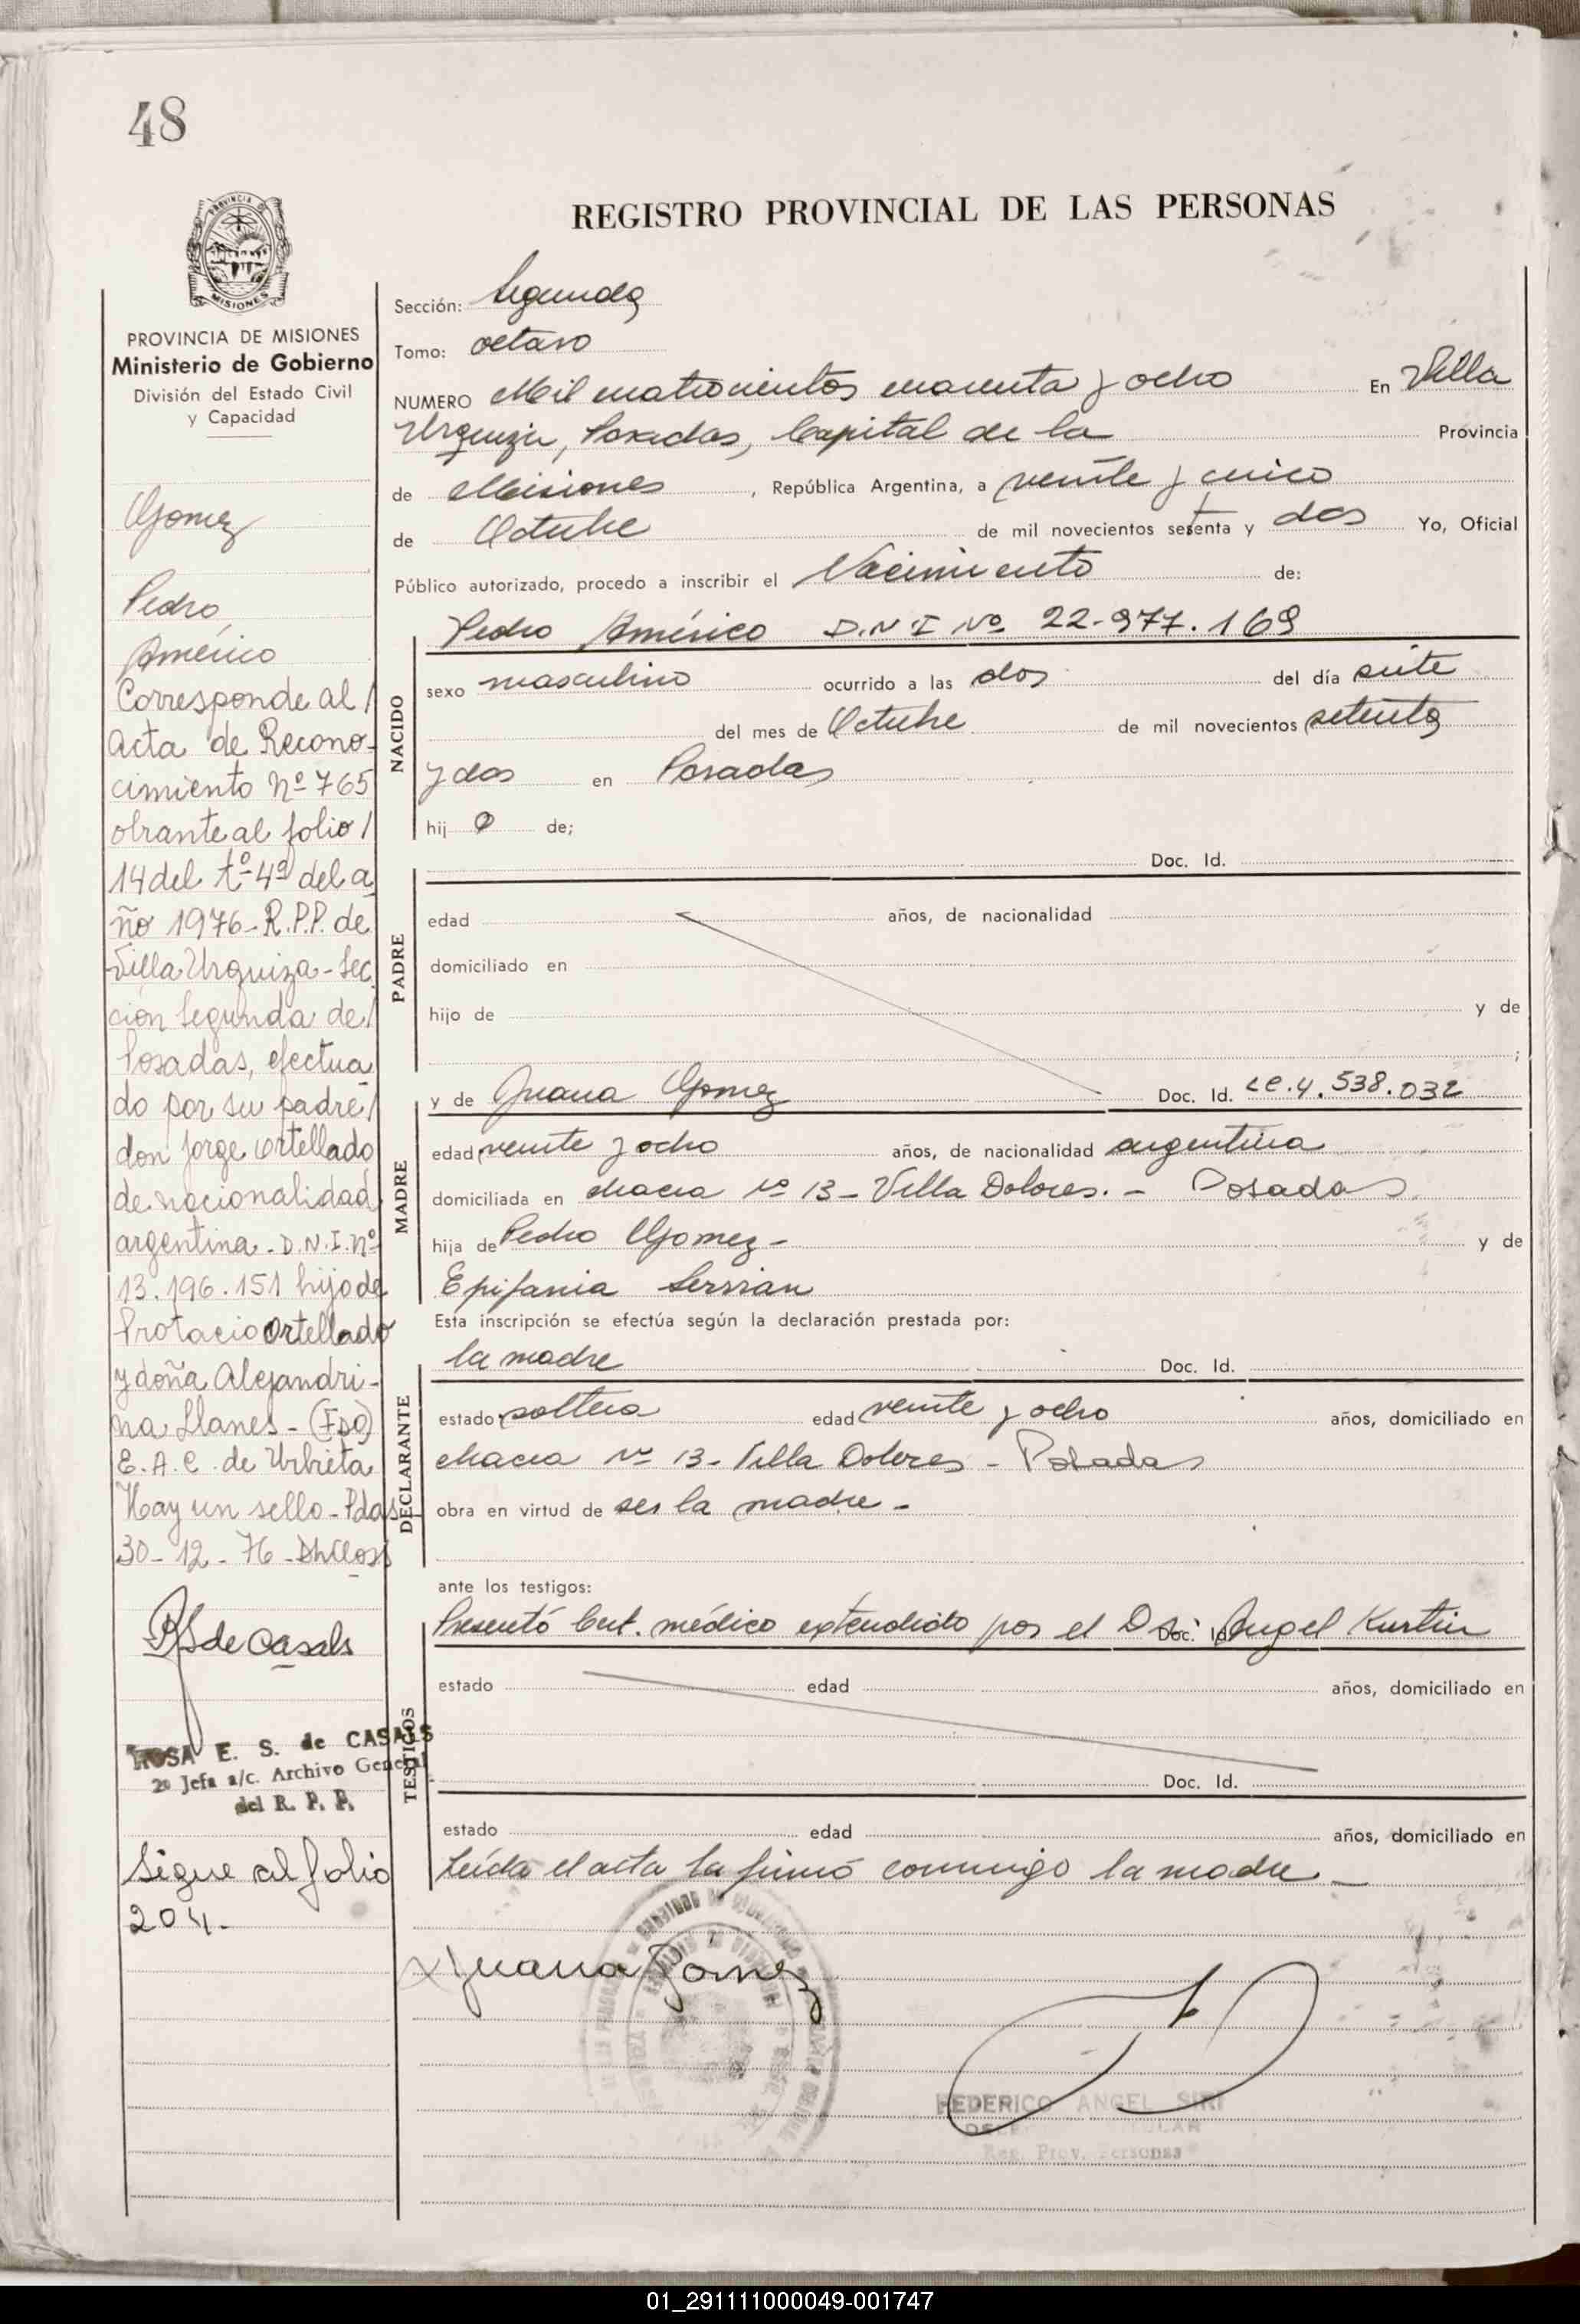 48
PROVINCIA DE
MISIONES
REGISTRO PROVINCIAL DE LAS PERSONAS
PROVINCIA DE MISIONES
Ministerio de Gobierno
División del Estado Civil
y Capacidad
Gomez
Pedro
Américo
Corresponde al/
acta de Recono-
cimiento Nº 765
obrante al folio/
14 del tº 4º del a
ño 1976- R.P.P. de
Villa Urquiza - Sec
ción Segunda de/
Posadas, efectua
do por su padre/
don Jorge Ortellado
de nacionalidad
argentina - D.N.I. Nº
13.196.151 hijo de
Protacio Ortellado
y doña Alejandri-
na Llanes - (Fdo)
E. A. C. de Urbieta
Hay un sello - Pdas
30-12-76 -
RS de Casals
ROSA E. S. de CASALS
2º Jefa a/c. Archivo General
del R. P. P.
Sigue al folio
204.-
Sección: Segunda
Tomo: octavo
NUMERO Mil cuatrocientos cuarenta y ocho En Villa
Urquiza, Posadas, Capital de la Provincia
de Misiones, República Argentina, a veinte y cinco
de Octubre de mil novecientos setenta y dos Yo, Oficial
Público autorizado, procedo a inscribir el Nacimiento de:
NACIDO
Pedro Américo D.N.I Nº 22-977.169
sexo masculino ocurrido a las dos del día siete
del mes de Octubre de mil novecientos setenta
y dos en Posadas
hij o de;
PADRE
Doc. Id.
edad años, de nacionalidad
domiciliado en
hijo de y de
;
MADRE
y de Juana Gomez Doc. Id. LC.4.538.032
edad veinte y ocho años, de nacionalidad argentina
domiciliada en chacra Nº 13 - Villa Dolores. - Posadas
hija de Pedro Gomez - y de
Epifania Servian
Esta inscripción se efectúa según la declaración prestada por:
DECLARANTE
la madre Doc. Id.
estado soltera edad veinte y ocho años, domiciliado en
chacra Nº 13 - Villa Dolores - Posadas
obra en virtud de ser la madre -
ante los testigos:
TESTIGOS
Presentó Cert. médico extendido por el Doc. Id. Angel Kurtin
estado edad años, domiciliado en
Doc. Id.
estado edad años, domiciliado en
Leída el acta la firmó conmigo la madre -
Juana Gomez
FEDERICO ANGEL SIRI
Reg. Prov. Personas
01_291111000049-001747